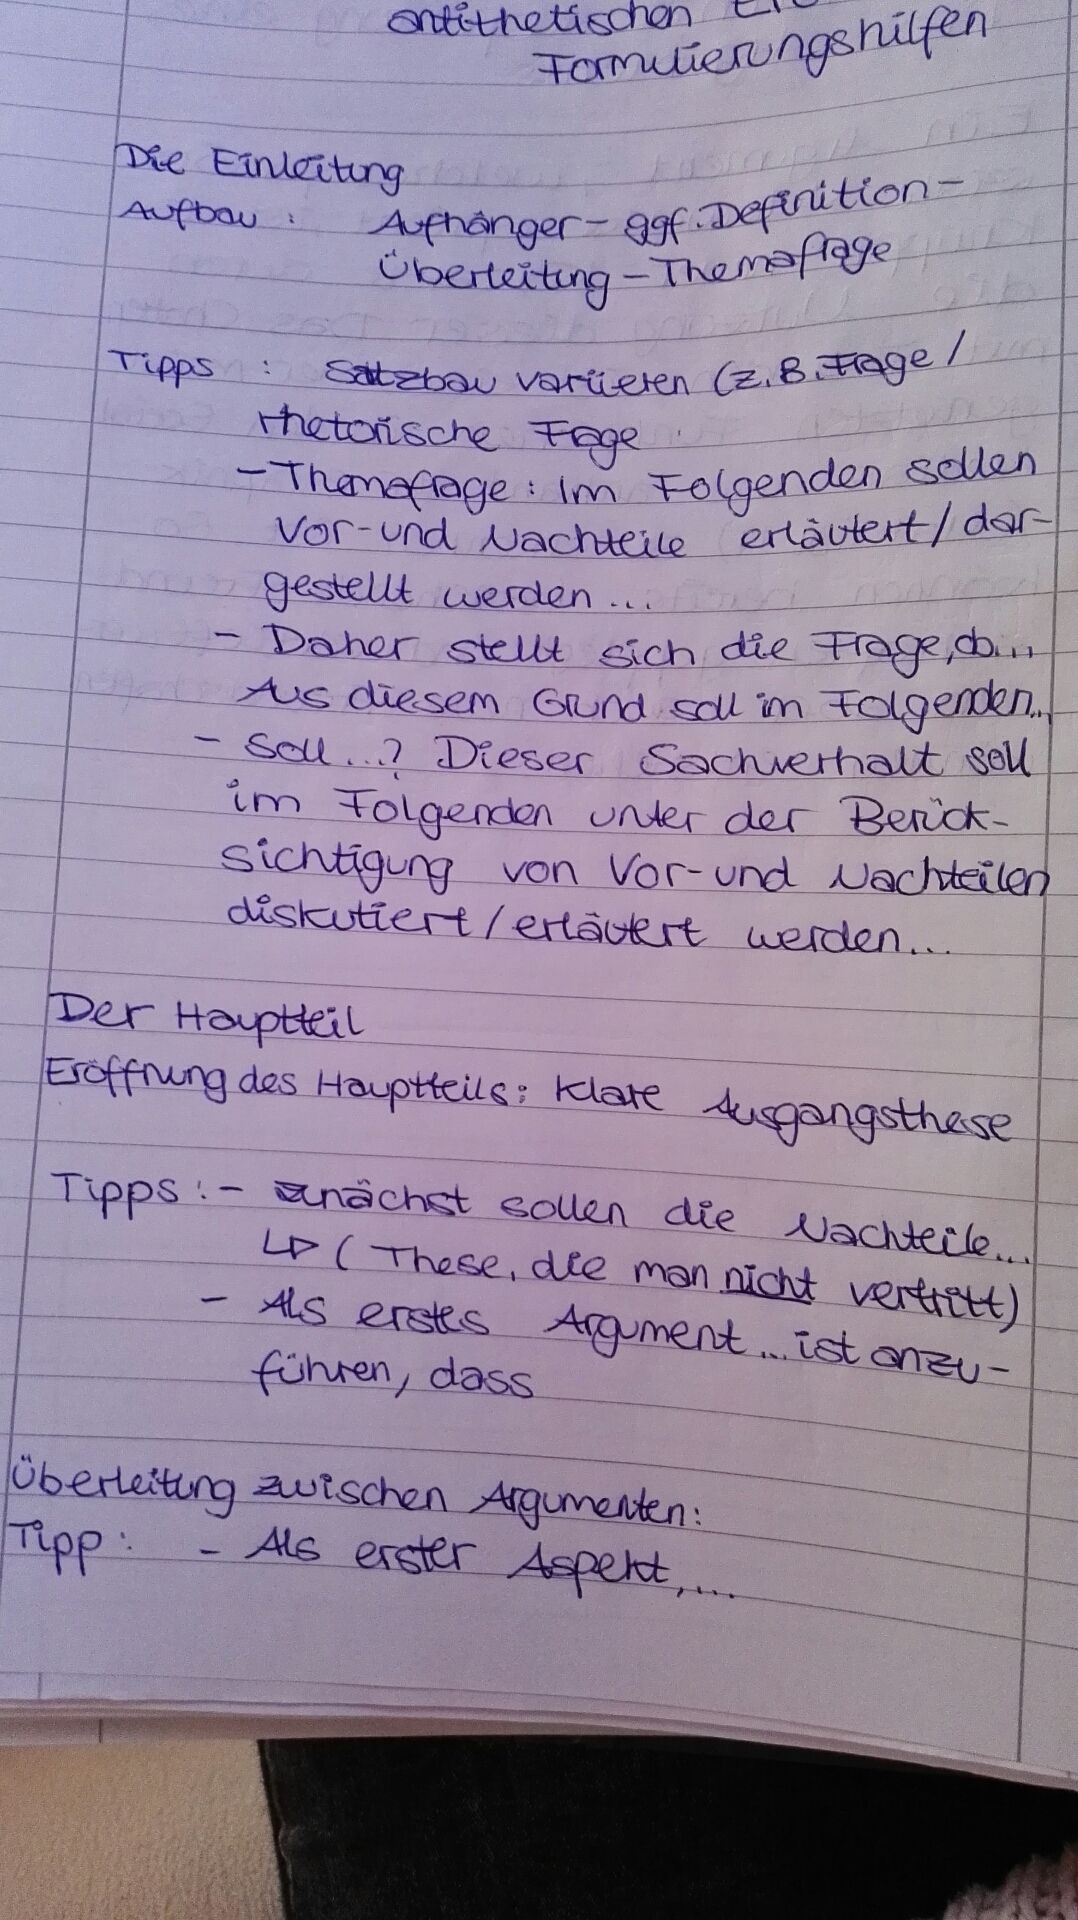 antithetischen
Formulierungshilfen
Die Einleitung
Aufbau : Aufhänger - ggf. Definition -
Überleitung - Themafrage
Tipps : Satzbau variieren (z.B. Frage /
rhetorische Frage
- Themafrage : Im Folgenden sollen
Vor- und Nachteile erläutert / dar-
gestellt werden ...
- Daher stellt sich die Frage, ob...
Aus diesem Grund soll im Folgenden..
- Soll ...? Dieser Sachverhalt soll
im Folgenden unter der Berück-
sichtigung von Vor- und Nachteilen
diskutiert / erläutert werden...
Der Hauptteil
Eröffnung des Hauptteils: Klare Ausgangsthese
Tipps : - zunächst sollen die Nachteile...
↳ (These, die man nicht vertritt)
- Als erstes Argument ... ist anzu-
führen, dass
Überleitung zwischen Argumenten:
Tipp : - Als erster Aspekt, ...